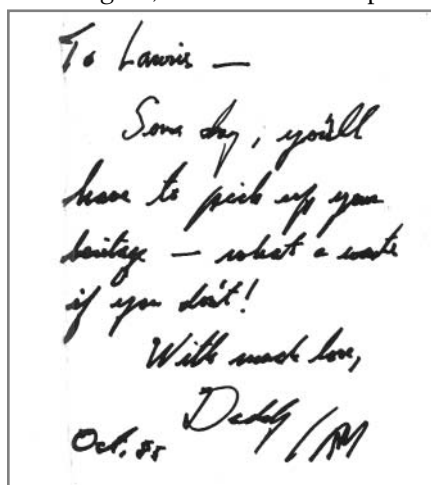 To —
Some day, you'll
have to pick up your
heritage — what a waste
if you don't!
With much love,
Daddy
Oct.